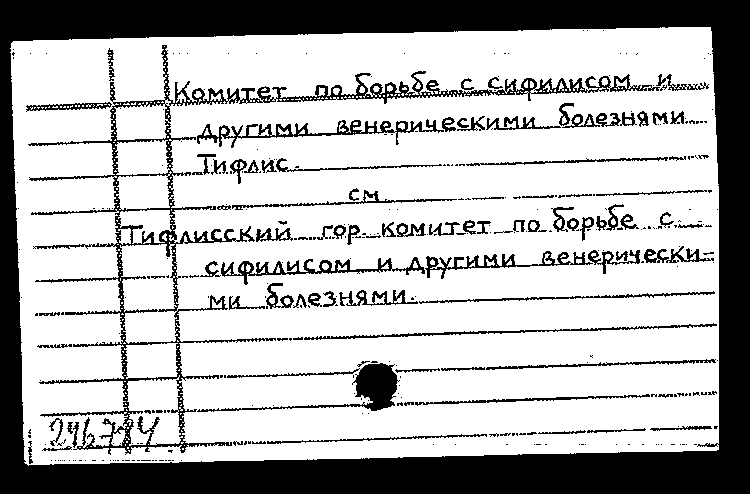 Комитет по борьбе с сифилисом и
другими венерическими болезнями
Тифлис.
см
Тифлисский гор. комитет по борьбе с
сифилисом и другими венерически-
ми болезнями.
246784